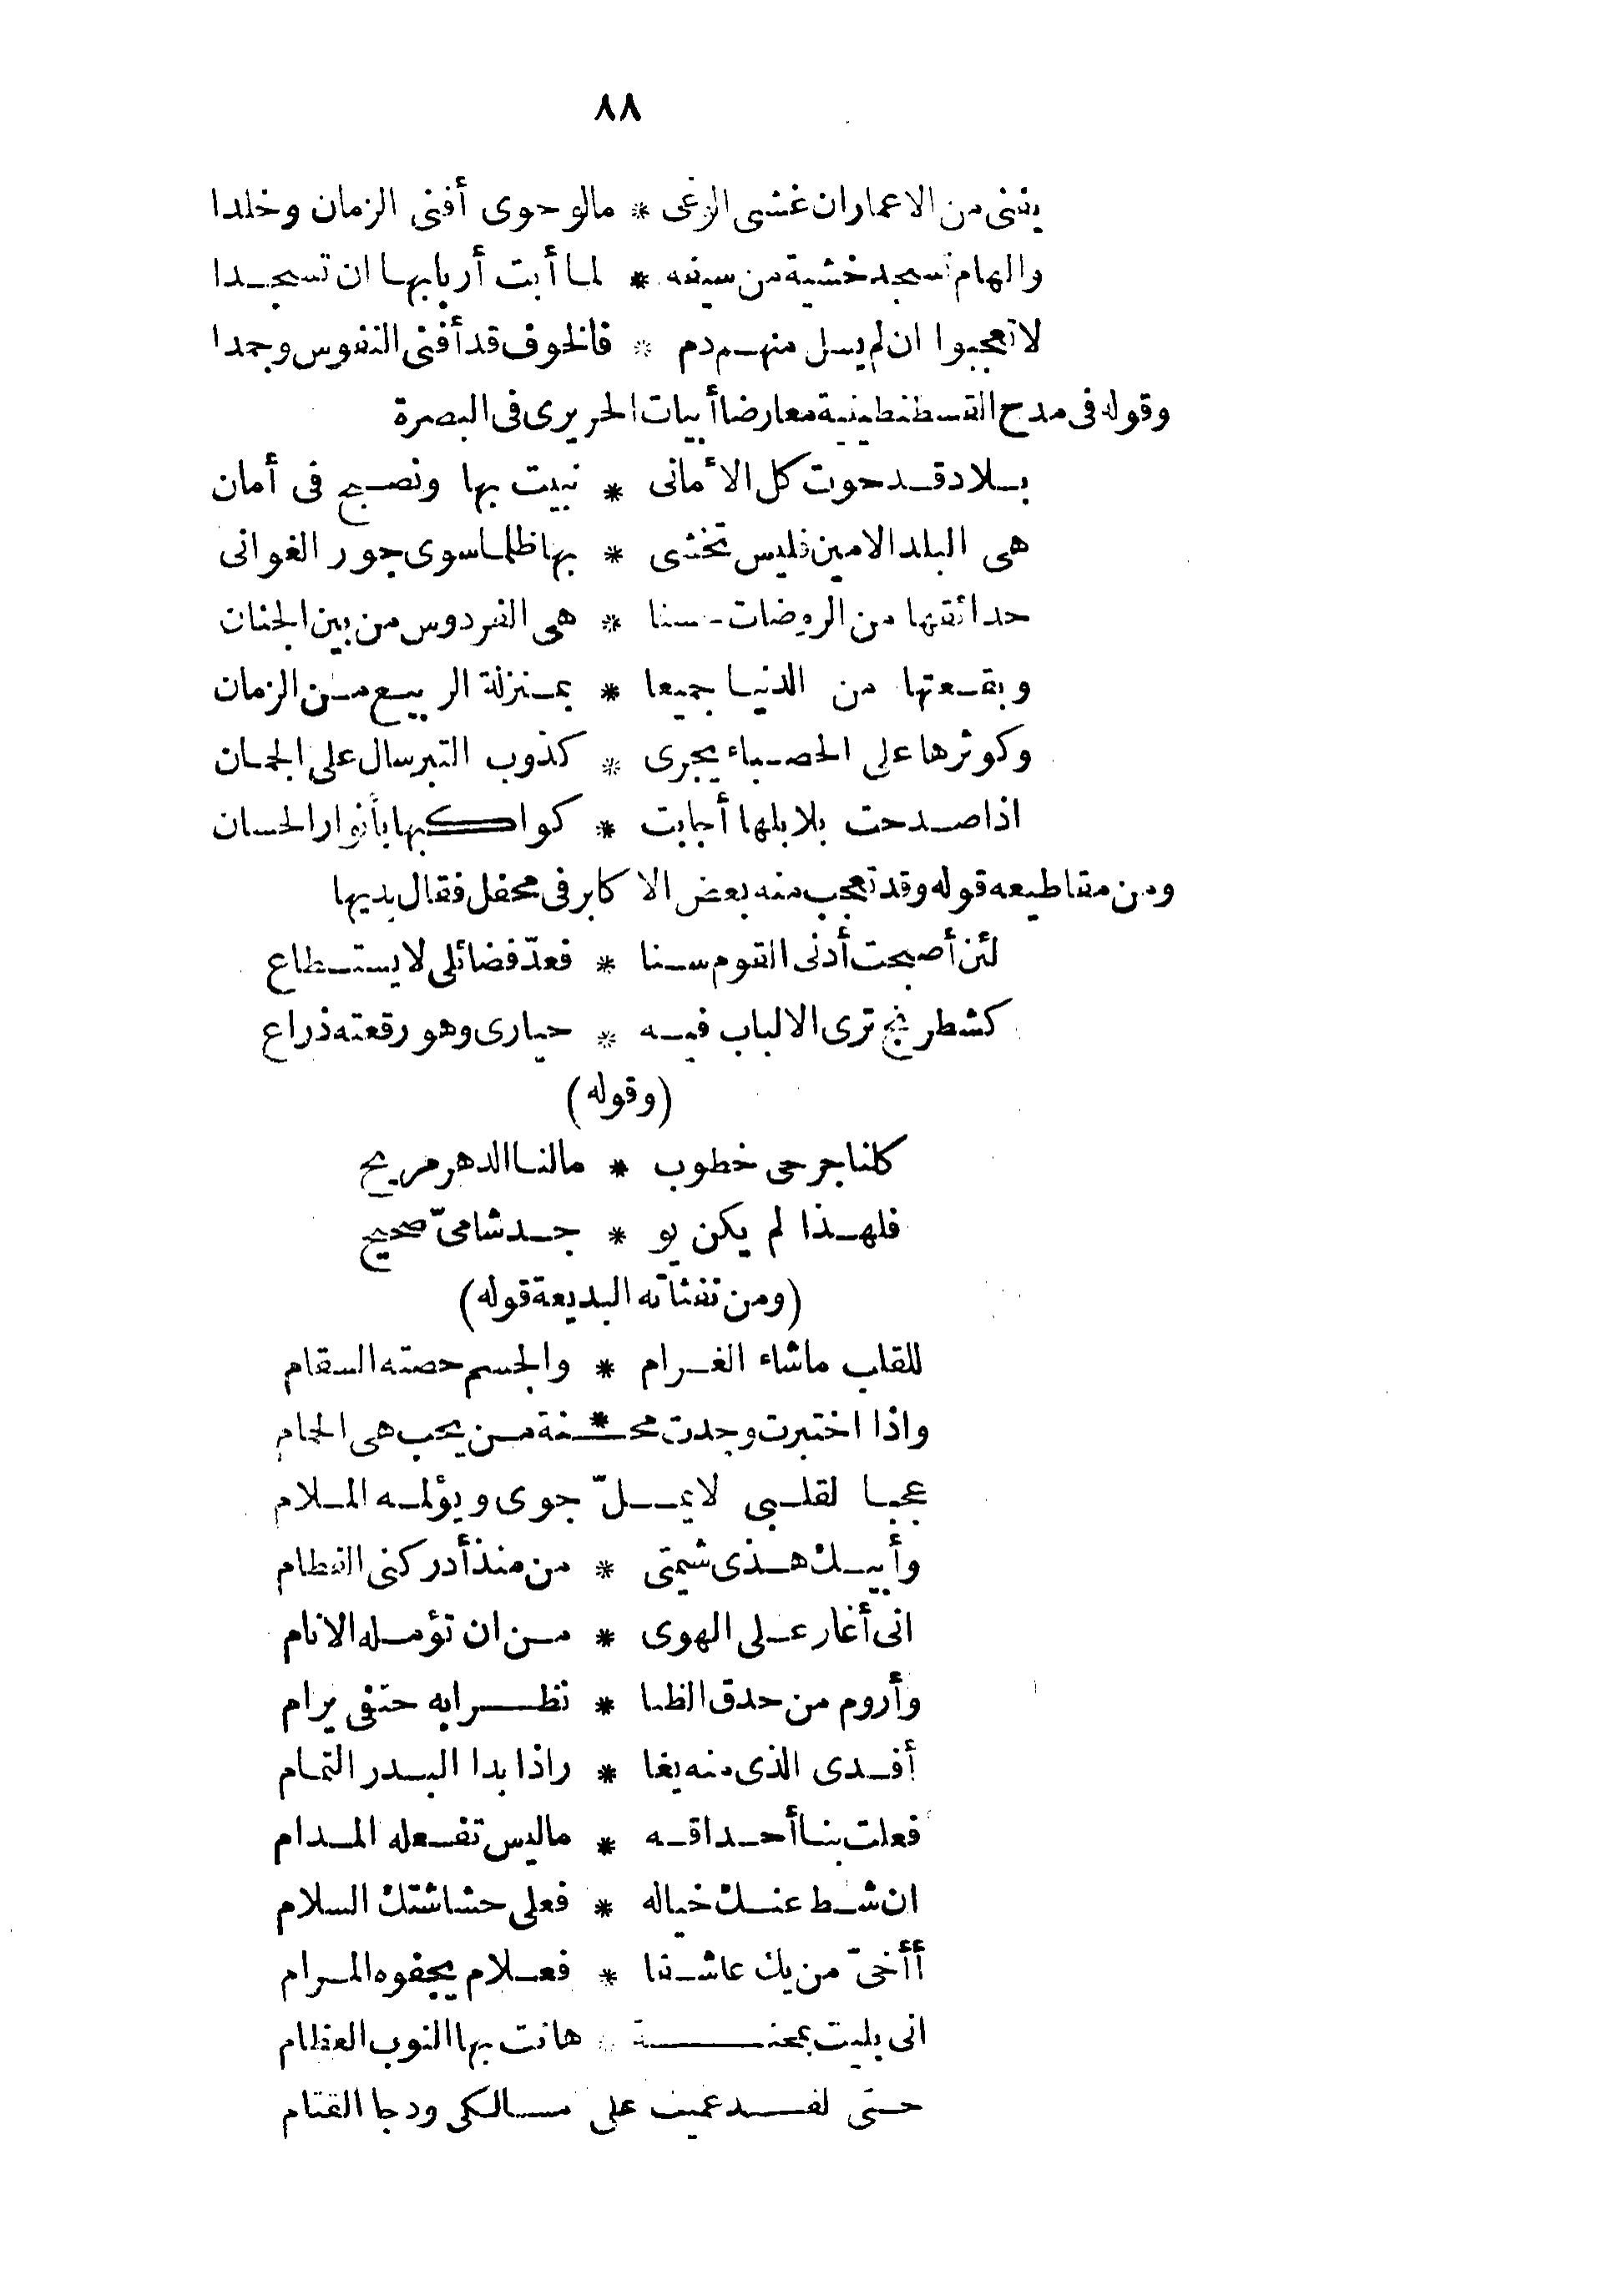 ٨٨
يفنى من الاعمار ان غشى الوغى * مالو حوى أفنى الزمان وخلدا
والهام تسجد خشية من سيفه * لما أبت أربابها ان تسجدا
لا تعجبوا ان لم يسل منهم دم * فالخوف قد أفنى النفوس وجمدا
وقوله فى مدح القسطنطينية معارضا أبيات الحريرى فى البصرة
بلاد قد حوت كل الأمانى * نبيت بها ونصبح فى أمان
هى البلد الامين فليس تخشى * بها ظلما سوى جور الغوانى
حدائقها من الروضات حسنا * هى الفردوس من بين الجنان
وبقعتها من الدنيا جميعا * بمنزلة الربيع من الزمان
وكوثرها على الحصباء يجرى * كذوب التبر سال على الجمان
اذا صدحت بلابلها أجابت * كواكبها بأنوار الحسان
ومن مقاطيعه قوله وقد تعجب منه بعض الاكابر فى محفل فقال بديها
لئن أصبحت أدنى القوم سنا * فعدّ فضائلى لا يستطاع
كشطرنج ترى الالباب فيه * حيارى وهو رقعته ذراع
(وقوله)
كلنا جرحى خطوب * مالنا الدهر مريح
فلهذا لم يكن يو * جد شامىّ صحيح
(ومن نفثاته البديعة قوله)
للقلب ماشاء الغرام * والجسم حصته السقام
واذا اختبرت وجدت محـ*ـنة من يحب هى الحمام
عجبا لقلبى لا يملّ جوى ويؤلمه الملام
وأبيك هذى شيمتى * من منذ أدركنى الفطام
انى أغار على الهوى * من ان تؤمله الانام
وأروم من حدق الظبا * نظرا به حتفى يرام
أفدى الذى منه يغا * راذا بدا البدر التمام
فعلت بنا أحداقه * ماليس تفعله المدام
ان شط عنك خياله * فعلى حشاشتك السلام
أأخىّ من يك عاشقا * فعلام يجفوه المرام
انى بليت بمحنة * هانت بها النوب العظام
حتى لقد عميت على مسالكى ودجا القتام